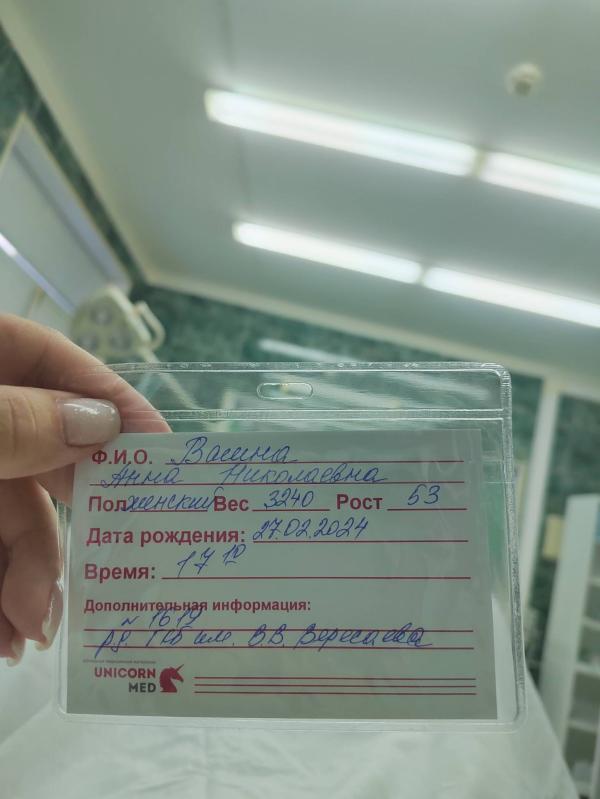 Ф.И.О. Вагина
Анна Николаевна
Пол женский Вес 3240 Рост 53
Дата рождения: 27.02.2024
Время: 17 10
Дополнительная информация:
№ 1619
р.д. ГКБ им. В.В. Вересаева
UNICORN
MED